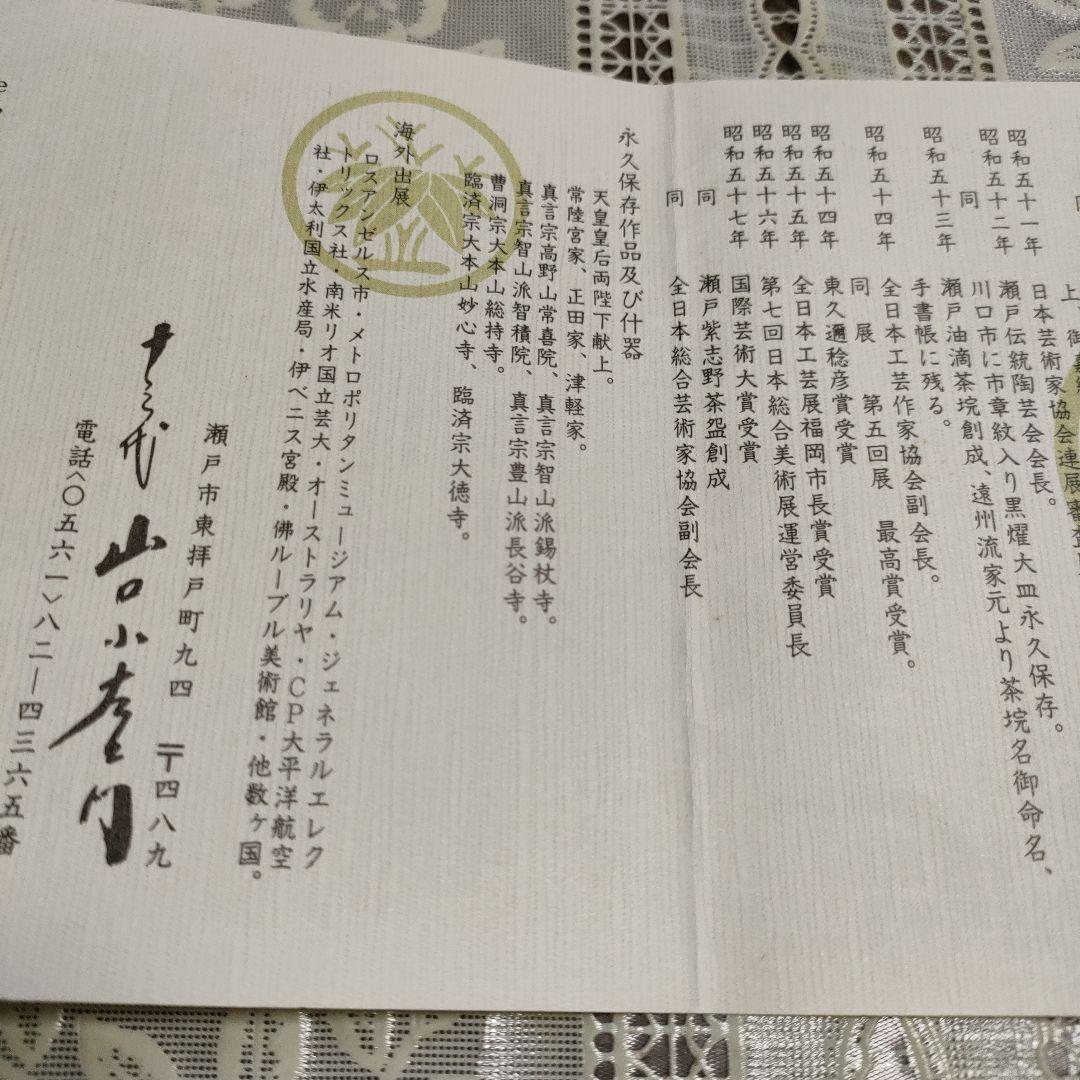 同
上
日本芸術家協会連展審査
昭和五十一年　瀬戸伝統陶芸会会長。
昭和五十二年　川口市に市章紋入り黒燿大皿永久保存。
同　瀬戸油滴茶垸創成、遠州流家元より茶垸名御命名、
手書帳に残る。
昭和五十三年　全日本工芸作家協会副会長。
同展　第五回展　最高賞受賞。
昭和五十四年　東久邇稔彦賞受賞
昭和五十四年　全日本工芸展福岡市長賞受賞
昭和五十五年　第七回日本総合美術展運営委員長
昭和五十六年　国際芸術大賞受賞
昭和五十七年　瀬戸紫志野茶盌創成
同　全日本総合芸術家協会副会長
同
永久保存作品及び什器
天皇皇后両陛下献上。
常陸宮家、正田家、津軽家。
真言宗高野山常喜院、真言宗智山派錫杖寺。
真言宗智山派智積院、真言宗豊山派長谷寺。
曹洞宗大本山総持寺。
臨済宗大本山妙心寺、臨済宗大徳寺。
海外出展
ロスアンゼルス市・メトロポリタンミュージアム・ジェネラルエレク
トリックス社・南米リオ国立芸大・オーストラリヤ・CP大平洋航空
社・伊太利国立水産局・伊ベニス宮殿・佛ルーブル美術館・他数ヶ国。
瀬戸市東拝戸町九四　〒四八九
十三代　山口小左ヱ門
電話〈〇五六一〉八二―四三六五番
e